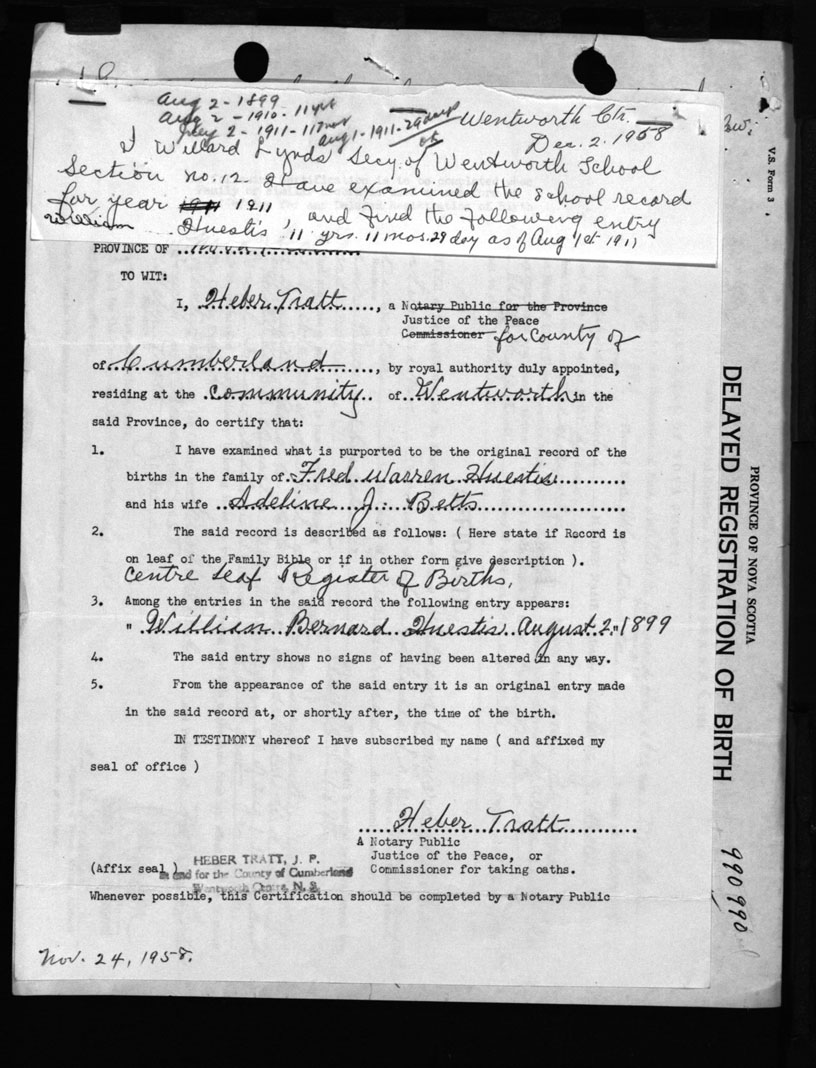 Aug 2 - 1899
Aug 2 - 1910 - 11 yrs
July 2 - 1911 - 11 mos
Aug 1 - 1911 - 29 days
Wentworth Ctr.
Dec. 2. 1958
I Willard Lynds Secy. of Wentworth School
Section no. 12. Have examined the school record
for year 1911 1911
William Huestis, and find the following entry
11 yrs. 11 mos. 29 day as of Aug 1st 1911
PROVINCE OF
TO WIT:
I, Heber Tratt, a Notary Public for the Province
Justice of the Peace
Commissioner for County of
of Cumberland, by royal authority duly appointed,
residing at the community of Wentworth in the
said Province, do certify that:
1. I have examined what is purported to be the original record of the
births in the family of Fred Warren Huestis
and his wife Adeline J. Betts
2. The said record is described as follows: ( Here state if Record is
on leaf of the Family Bible or if in other form give description ).
Centre Leaf Register of Births.
3. Among the entries in the said record the following entry appears:
" William Bernard Huestis August 2, " 1899
4. The said entry shows no signs of having been altered in any way.
5. From the appearance of the said entry it is an original entry made
in the said record at, or shortly after, the time of the birth.
IN TESTIMONY whereof I have subscribed my name ( and affixed my
seal of office )
Heber Tratt
A Notary Public
Justice of the Peace, or
Commissioner for taking oaths.
(Affix seal )
HEBER TRATT, J. P.
in and for the County of Cumberland
Wentworth Centre, N. S.
Whenever possible, this Certification should be completed by a Notary Public
Nov. 24, 1958.
V.S. Form 3
PROVINCE OF NOVA SCOTIA
DELAYED REGISTRATION OF BIRTH
990990